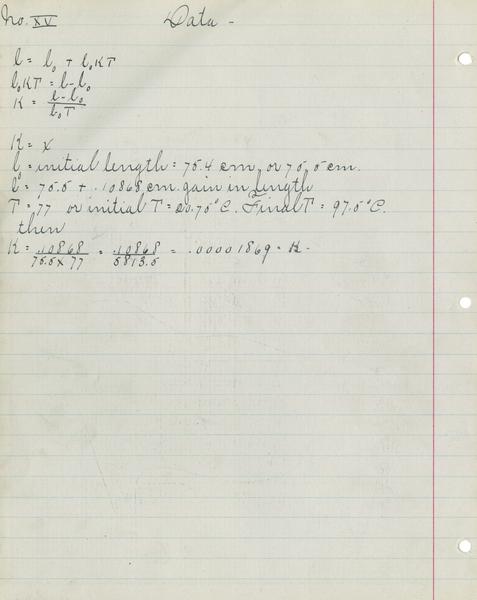 No. XV Data -
l = l₀ + l₀KT
l₀KT = l - l₀
K = l - l₀ / l₀T
K = x
l₀ = initial length = 75.4 cm, or 75.5 cm.
l = 75.5 + .10868 cm. gain in length
T = 77 or initial T = 20.75°C. Final T = 97.5°C.
then
K = .10868 / 75.5 x 77 = .10868 / 5813.5 = .00001869 = K -